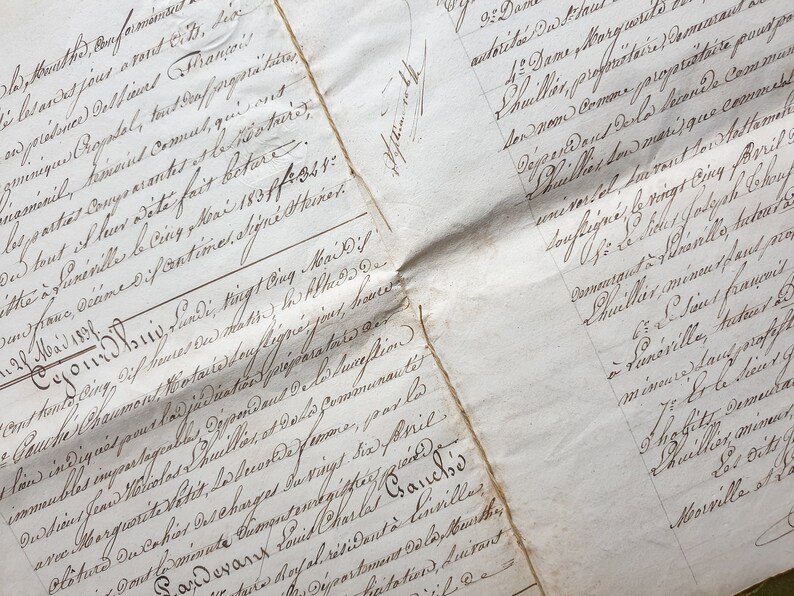 la Meurthe, conformément à
les an et jour avant dits, six
en présence des Sieurs François
ominique Cropsal, tous deux propriétaires,
énaménil, témoins connus, qui ont
les parties comparantes et le Notaire,
du tout il leur a été fait lecture.
à Lunéville le cinq Mai 1835 fo 34 Vo
un franc, décime dix centimes. Signé Steiner.
25 Mai 1835
Cejourdhui Lundi, vingt cinq Mai dix
cent trente cinq, dix heures du matin, en l'étude de
Gauché Chaumont, Notaire soussigné, jour, heure
lieu indiqués pour l'adjudication préparatoire des
immeubles impartageables, dépendant de la succession
du sieur Jean Nicolas Lhuillier, et de la communauté
avec Marguerite Petit, sa seconde femme, par la
clôture du cahier des charges du vingt six Avril
dont la minute dument enregistrée, précède
Pardevant Louis Charles Gauché
Notaire Royal résident à Lunéville
département de la Meurthe,
licitation, suivant
de
3o Dame
autorisée du dit Sieur
4o Dame, Marguerite
Lhuillier, propriétaire, demeurant à
son nom comme propriétaire pour
dépendans de la seconde commun
Lhuillier, son mari, que comme
universel suivant son testament
soussigné, le vingt cinq Avril
5o Le Sieur Joseph
demeurant à Lunéville, tuteur
Lhuillier, mineur sans pro
6o Le Sieur François
à Lunéville, tuteur a
mineure sans profess
7o Et le Sieur
d'habits, demeurant
Lhuillier, mineur,
Les dits
Merville et La